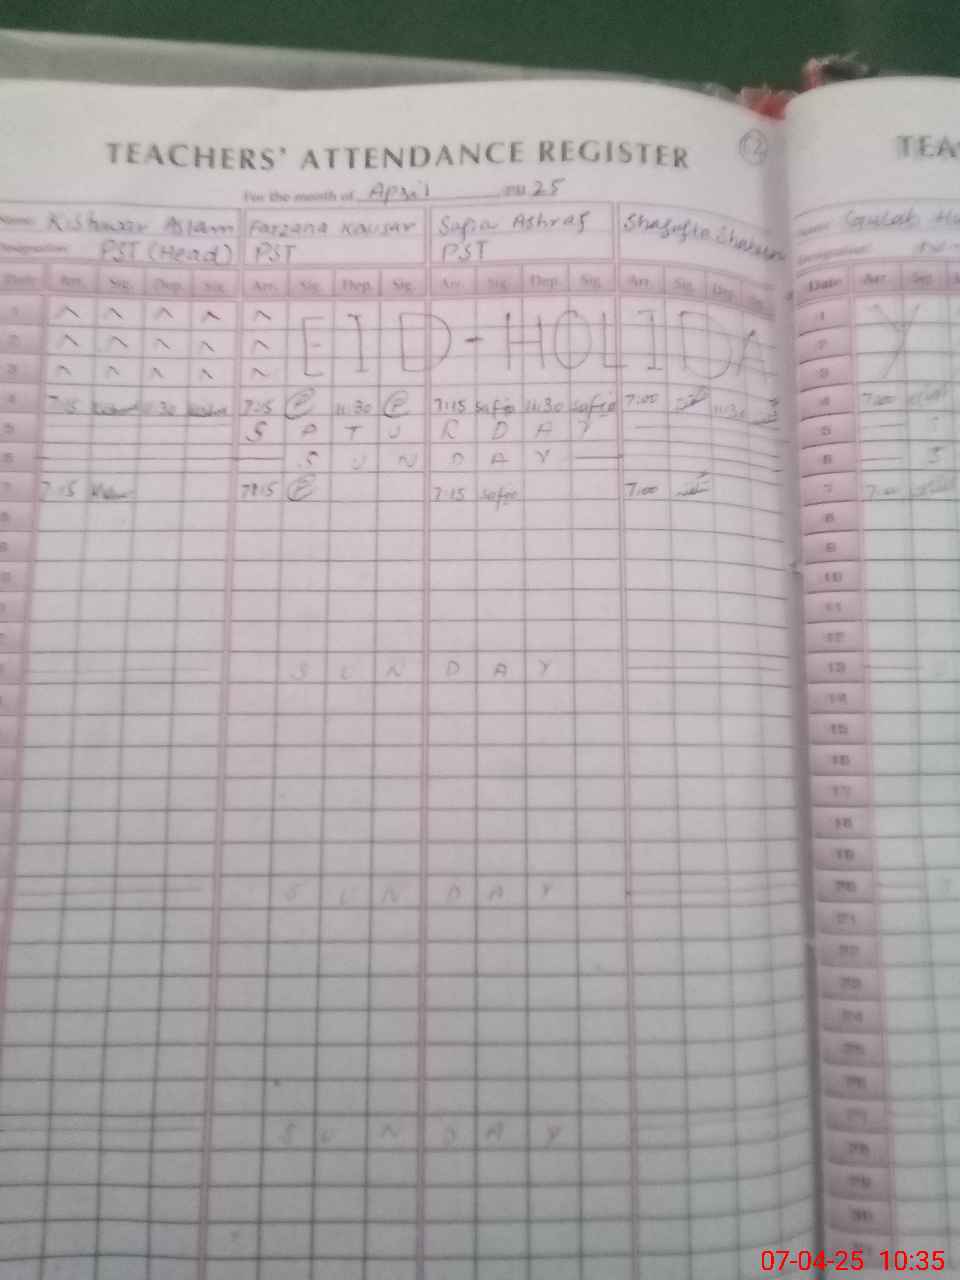 12
TEACHERS' ATTENDANCE REGISTER
TEA
For the month of April 2025
Name Kishwar Aslam Farzana Kausar Safia Ashraf Shagufta Shaheen
Name Gulab
Designation PST (Head) PST PST
Date Arr. Sig. Dep. Sig. Arr. Sig. Dep. Sig. Arr. Sig. Dep. Sig. Arr. Sig. Dep. Sig.
Date Arr. Sig.
1 EID-HOLIDA
1 Y
2
2
3
3
4 7:15 11:30 7:15 11:30 7:15 Safia 11:30 Safia 7:00 11:30
4 7:00
5 SATURDAY
5
6 SUNDAY
6 S
7 7:15 7:15 7:15 Safia 7:00
7 7:00
8
8
9
9
10
10
11
12
SUNDAY
13
14
15
16
17
18
19
SUNDAY
20
21
22
23
24
25
26
SUNDAY
27
28
29
30
07-04-25 10:35